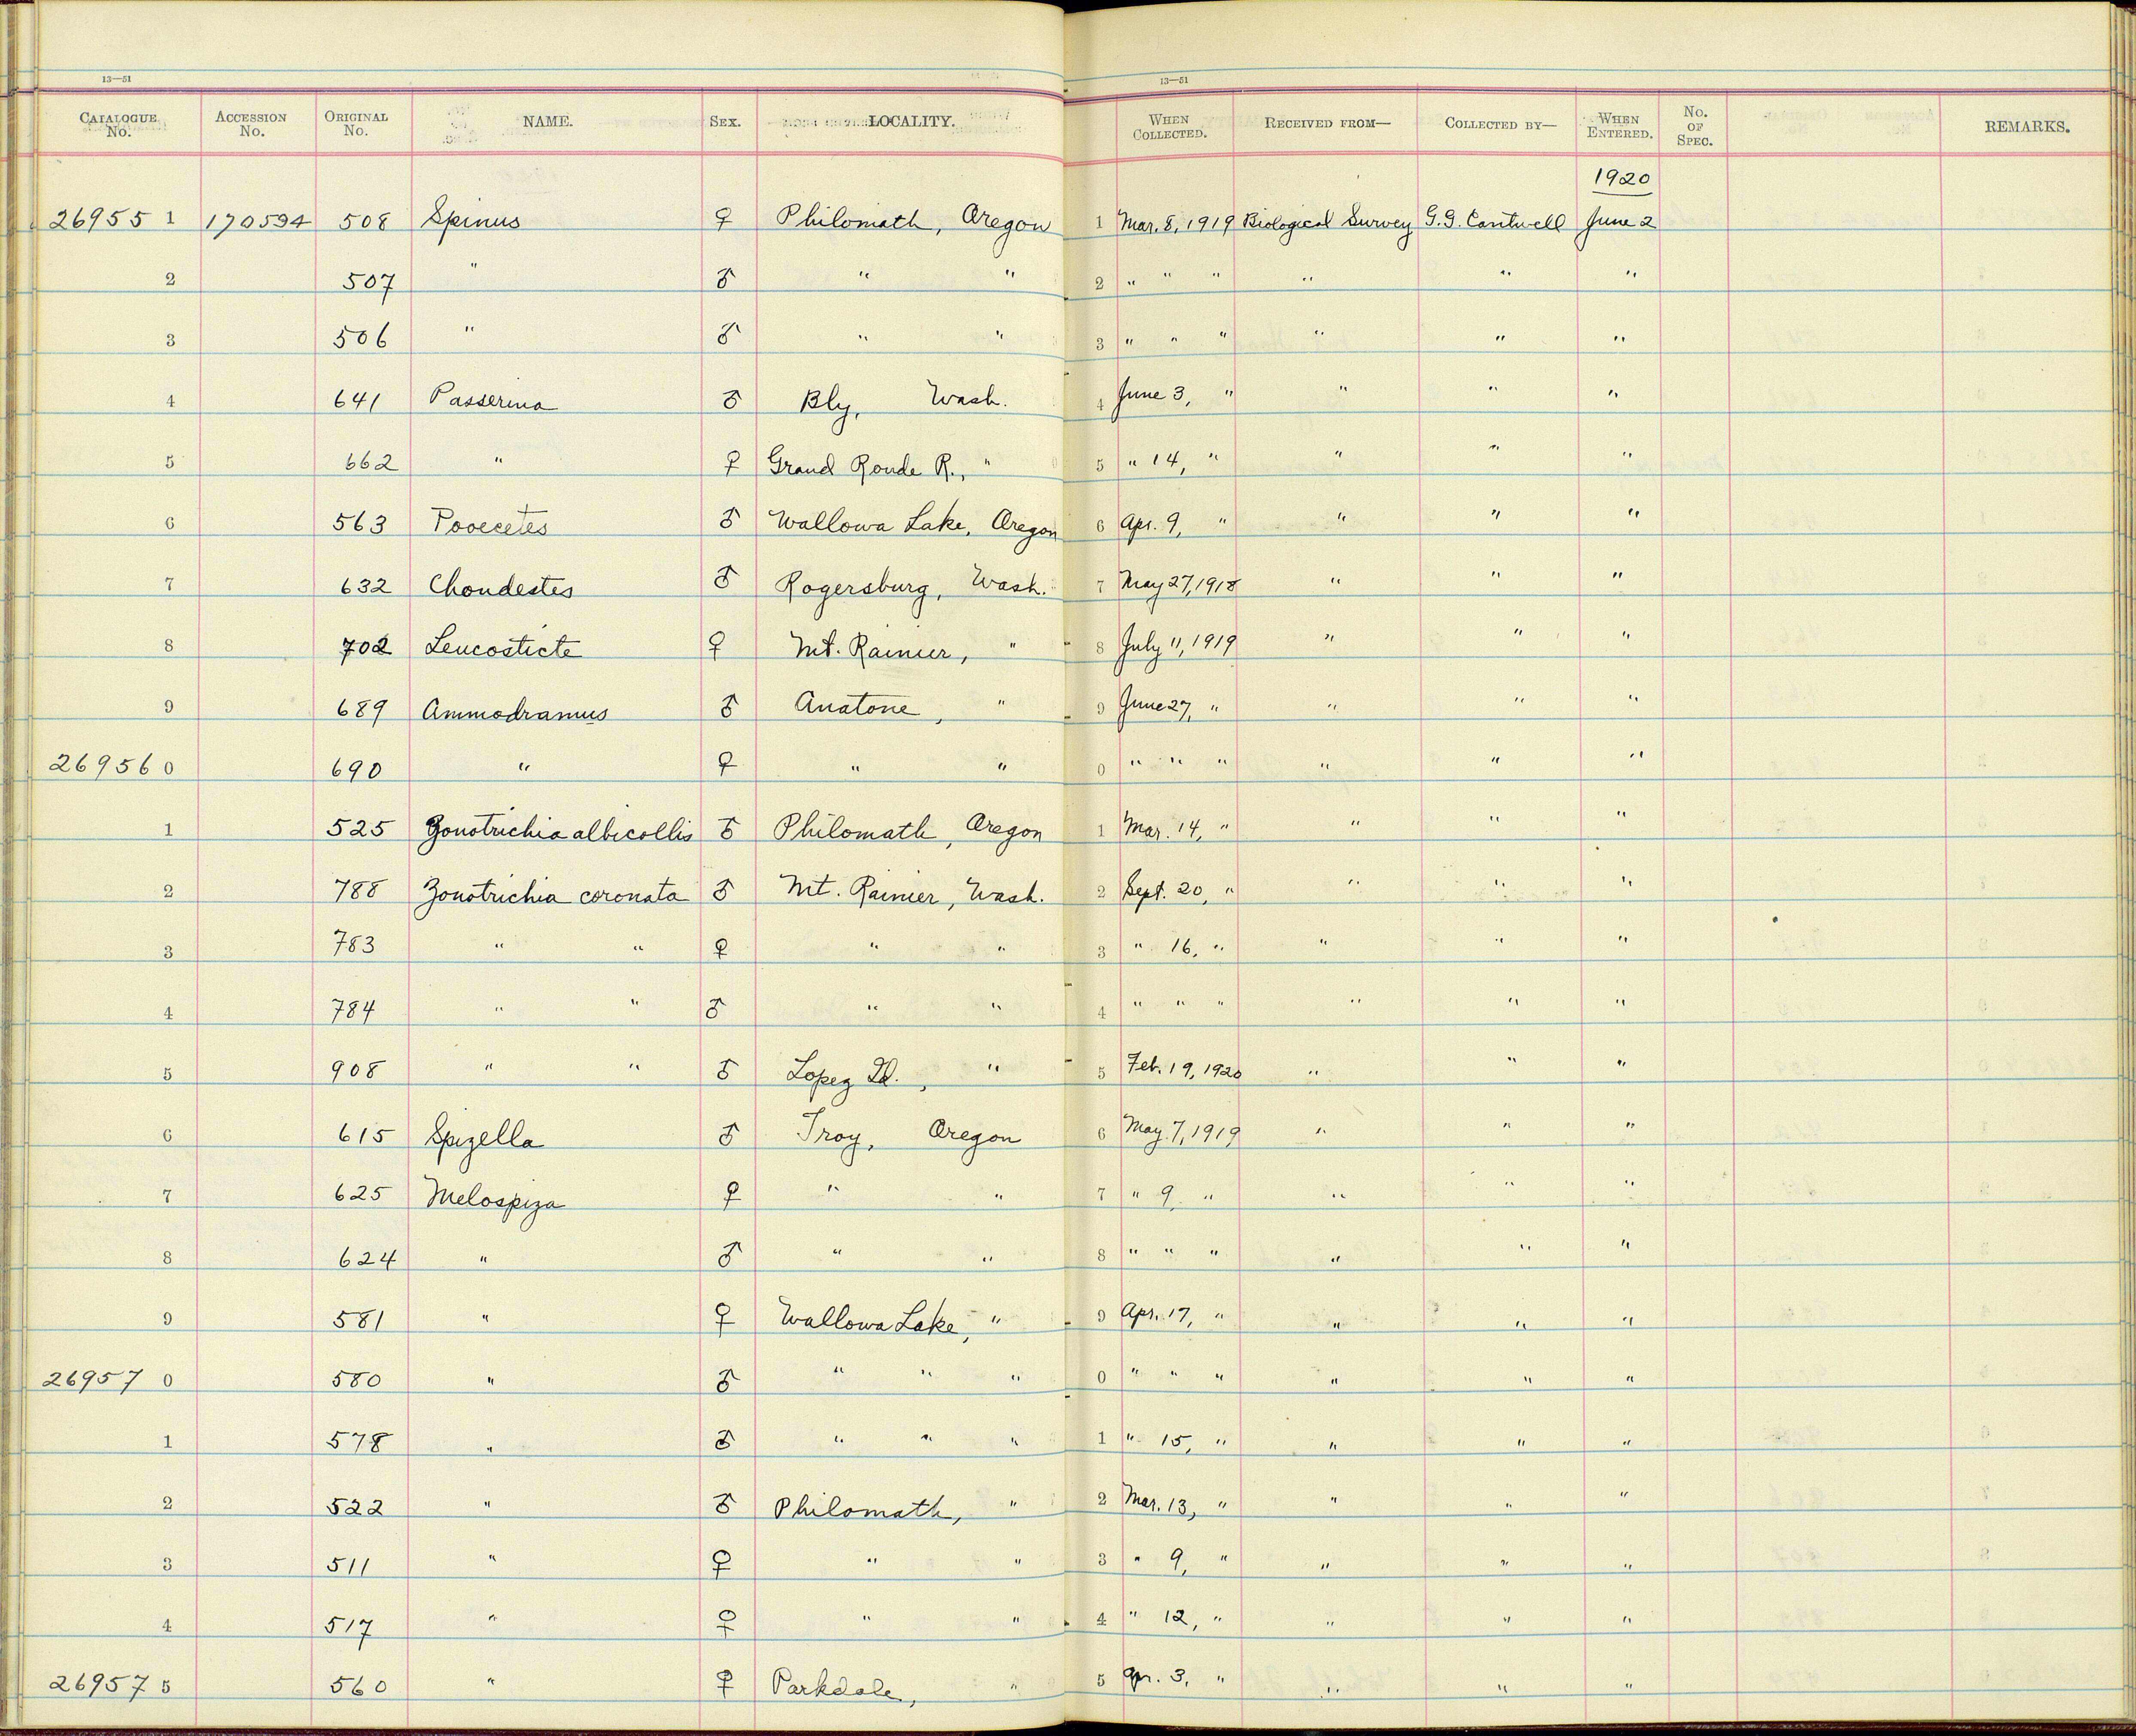 13—51 13—51
CATALOGUE No. ACCESSION No. ORIGINAL No. NAME. SEX. LOCALITY. WHEN COLLECTED. RECEIVED FROM— COLLECTED BY— WHEN ENTERED. No. OF SPEC. REMARKS.
1920
26955 1 170594 508 Spinus ♀ Philomath, Oregon 1 Mar. 8, 1919 Biological Survey G.G. Cantwell June 2
2 507 " ♂ " " 2 " " " " " "
3 506 " ♂ " " 3 " " " " " "
4 641 Passerina ♂ Bly, Wash. 4 June 3, " " " "
5 662 " ♀ Grand Ronde R., " 5 " 14, " " " "
6 563 Pooecetes ♂ Wallowa Lake, Oregon 6 Apr. 9, " " " "
7 632 Chondestes ♂ Rogersburg, Wash. 7 May 27, 1918 " " "
8 702 Leucosticte ♀ Mt. Rainier, " 8 July 11, 1919 " " "
9 689 Ammodramus ♂ Anatone, " 9 June 27, " " " "
26956 0 690 " ♀ " " 0 " " " " " "
1 525 Zonotrichia albicollis ♂ Philomath, Oregon 1 Mar. 14, " " " "
2 788 Zonotrichia coronata ♂ Mt. Rainier, Wash. 2 Sept. 20, " " " "
3 783 " " ♀ " " 3 " 16, " " " "
4 784 " " ♂ " " 4 " " " " " "
5 908 " " ♂ Lopez Id., " 5 Feb. 19, 1920 " " "
6 615 Spizella ♂ Troy, Oregon 6 May 7, 1919 " " "
7 625 Melospiza ♀ " " 7 " 9, " " " "
8 624 " ♂ " " 8 " " " " " "
9 581 " ♀ Wallowa Lake, " 9 Apr. 17, " " " "
26957 0 580 " ♂ " " " 0 " " " " " "
1 578 " ♂ " " " 1 " 15, " " " "
2 522 " ♂ Philomath, " 2 Mar. 13, " " " "
3 511 " ♀ " " 3 " 9, " " " "
4 517 " ♀ " " 4 " 12, " " " "
26957 5 560 " ♀ Parkdale, " 5 Apr. 3, " " " "